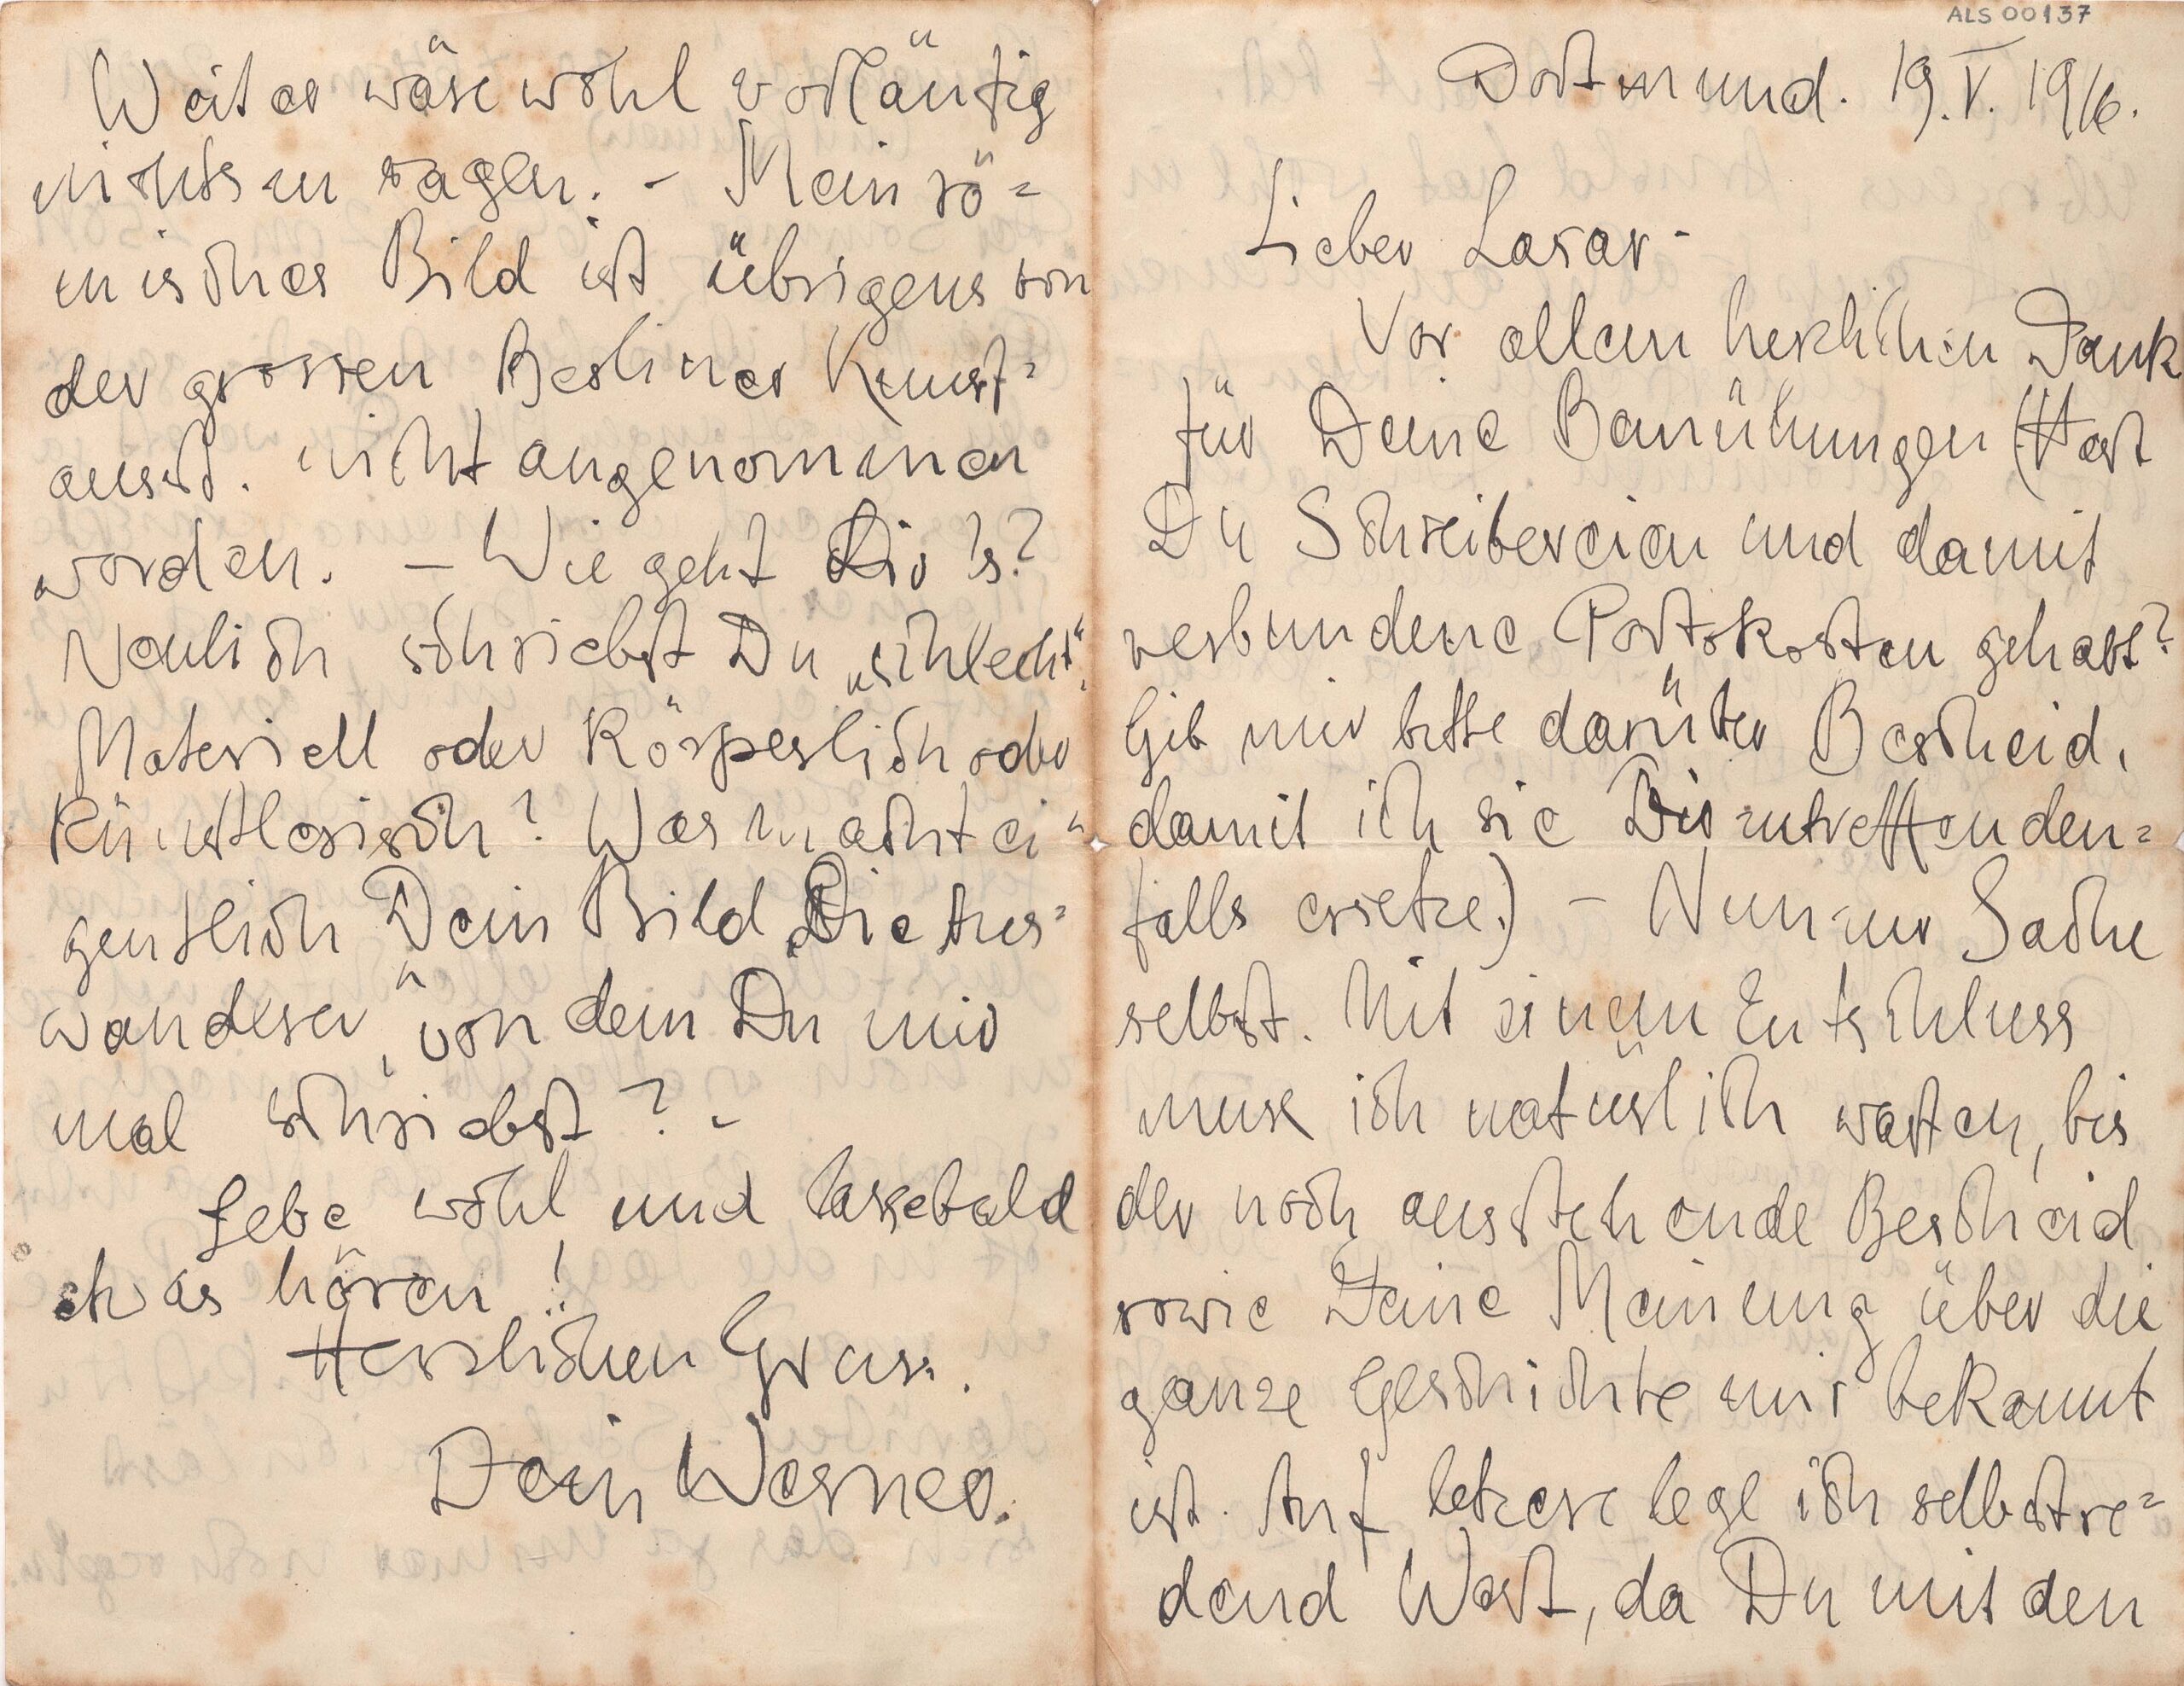 ALS 00137
Dortmund. 19.V.1916.
Lieber Lasar-
Vor allem herzlichen Dank
für Deine Bemühungen (Hast
Du Schreibereien und damit
verbundene Portokosten gehabt?
Gib mir bitte darüber Bescheid,
damit ich sie Dir zutreffenden=
falls ersetze.) – Nun zur Sache
selbst. Mit einem Entschluss
muss ich natürlich warten, bis
der noch ausstehende Bescheid
sowie Deine Meinung über die
ganze Geschichte mir bekannt
ist. Auf letzere lege ich selbstre=
dend Wert, da Du mit den
Weiter wäre wohl vorläufig
nichts zu sagen. – Mein rö=
misches Bild ist übrigens von
der grossen Berliner Kunst=
ausst. nicht angenommen
worden. – Wie geht Dir's?
Neulich schriebst Du „schlecht“.
Materiell oder körperlich oder
künstlerisch? Was macht ei=
gentlich Dein Bild „Die Aus=
wanderer“, von dem Du mir
mal schriebst? -
Lebe wohl und lasse bald
etwas hören!
Herzlichen Gruss.
Dein Werner.